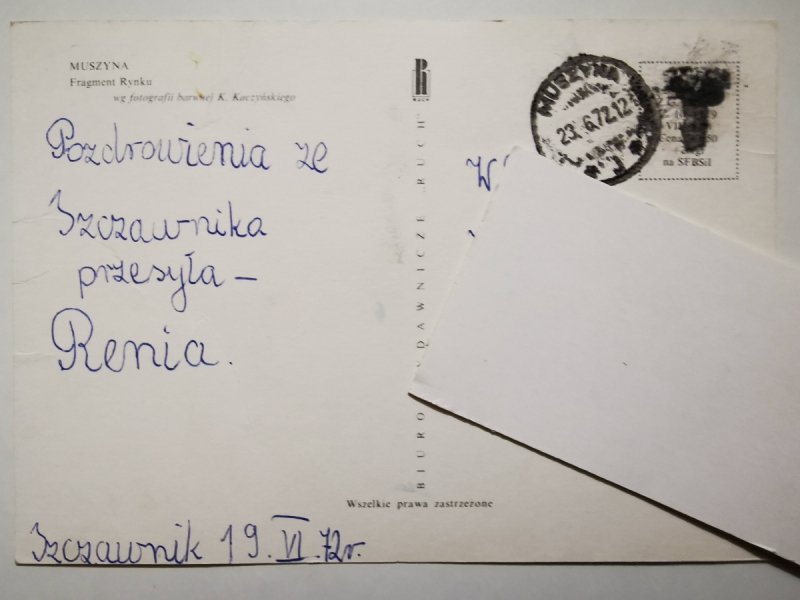 MUSZYNA
Fragment Rynku
wg fotografii barwnej K. Kaczyńskiego
Pozdrowienia ze
Szczawnika
przesyła –
Renia.
Szczawnik 19. VI. 72r.
RUCH
BIURO WYDAWNICZE RUCH
Wszelkie prawa zastrzeżone
MUSZYNA
23.-6.72.12
Cena
na SFBSiI